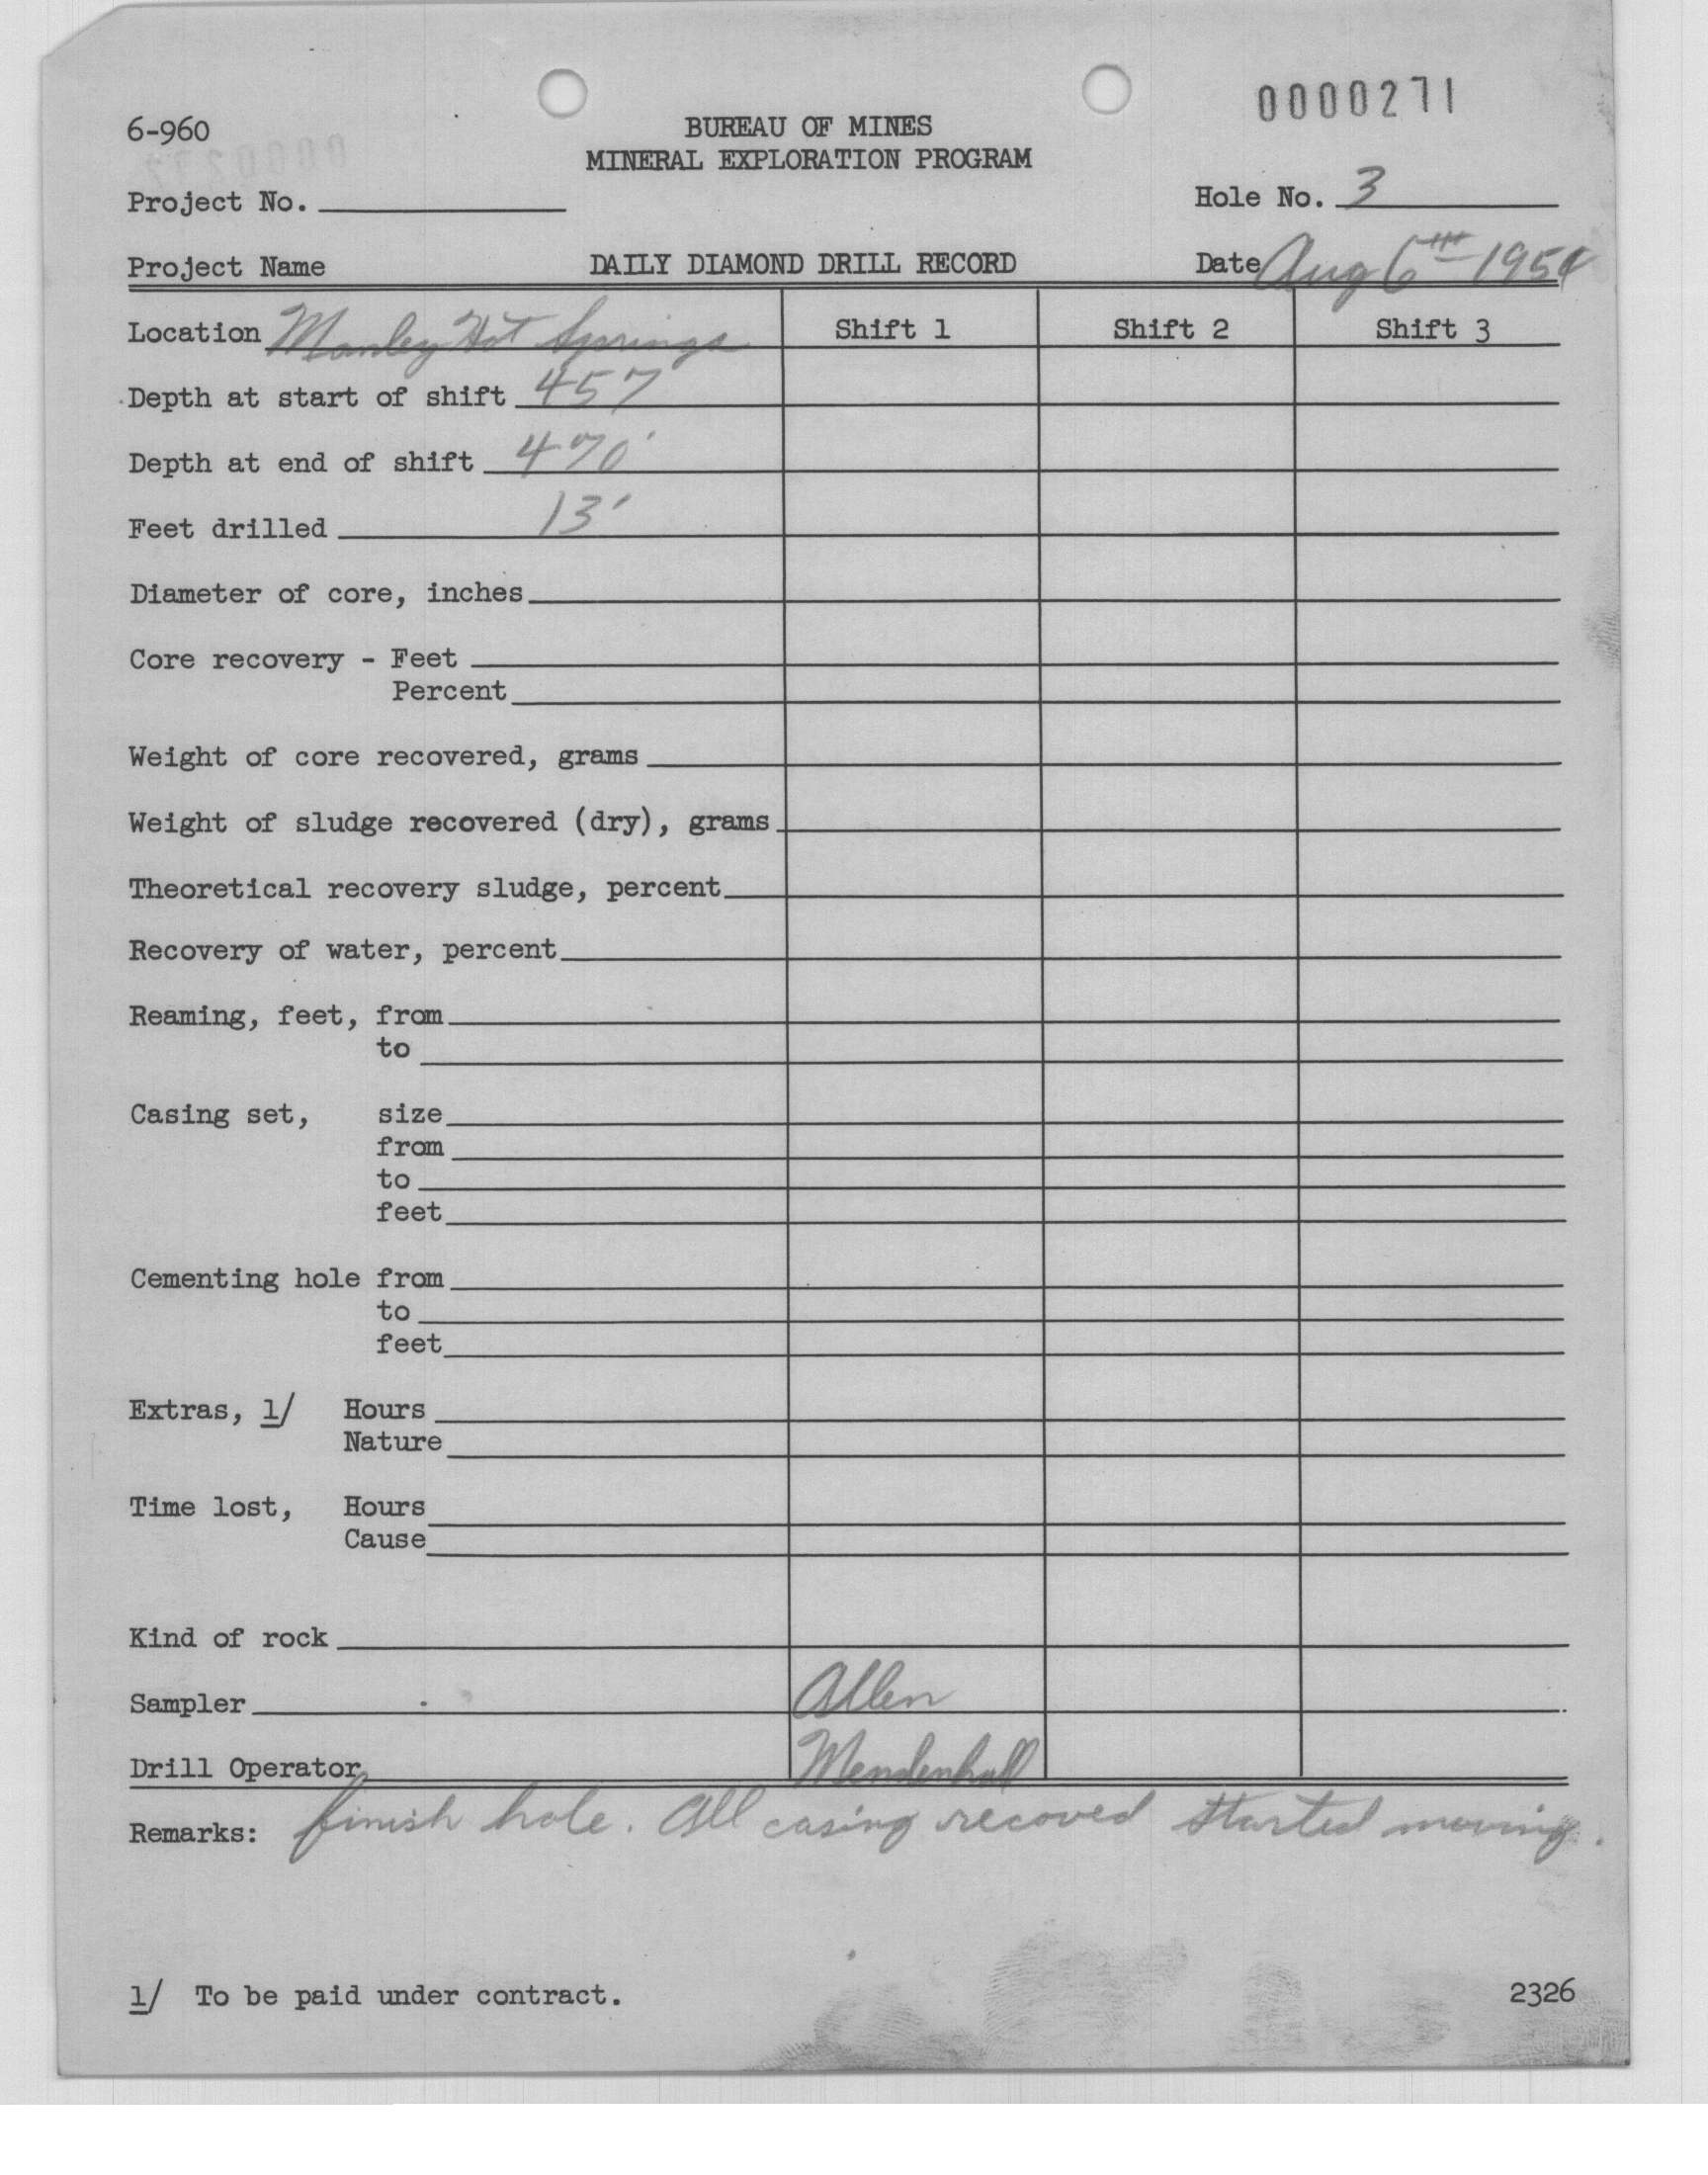 0000271
6-960
BUREAU OF MINES
MINERAL EXPLORATION PROGRAM
Project No.
Hole No. 3
Project Name DAILY DIAMOND DRILL RECORD Date Aug 6th 1954
Location Manley Hot Springs Shift 1 Shift 2 Shift 3
Depth at start of shift 457
Depth at end of shift 470'
Feet drilled 13'
Diameter of core, inches
Core recovery - Feet
Percent
Weight of core recovered, grams
Weight of sludge recovered (dry), grams
Theoretical recovery sludge, percent
Recovery of water, percent
Reaming, feet, from
to
Casing set, size
from
to
feet
Cementing hole from
to
feet
Extras, 1/ Hours
Nature
Time lost, Hours
Cause
Kind of rock
Sampler Allen
Drill Operator Mendenhall
Remarks: finish hole. All casing recoved started moving.
1/ To be paid under contract.
2326